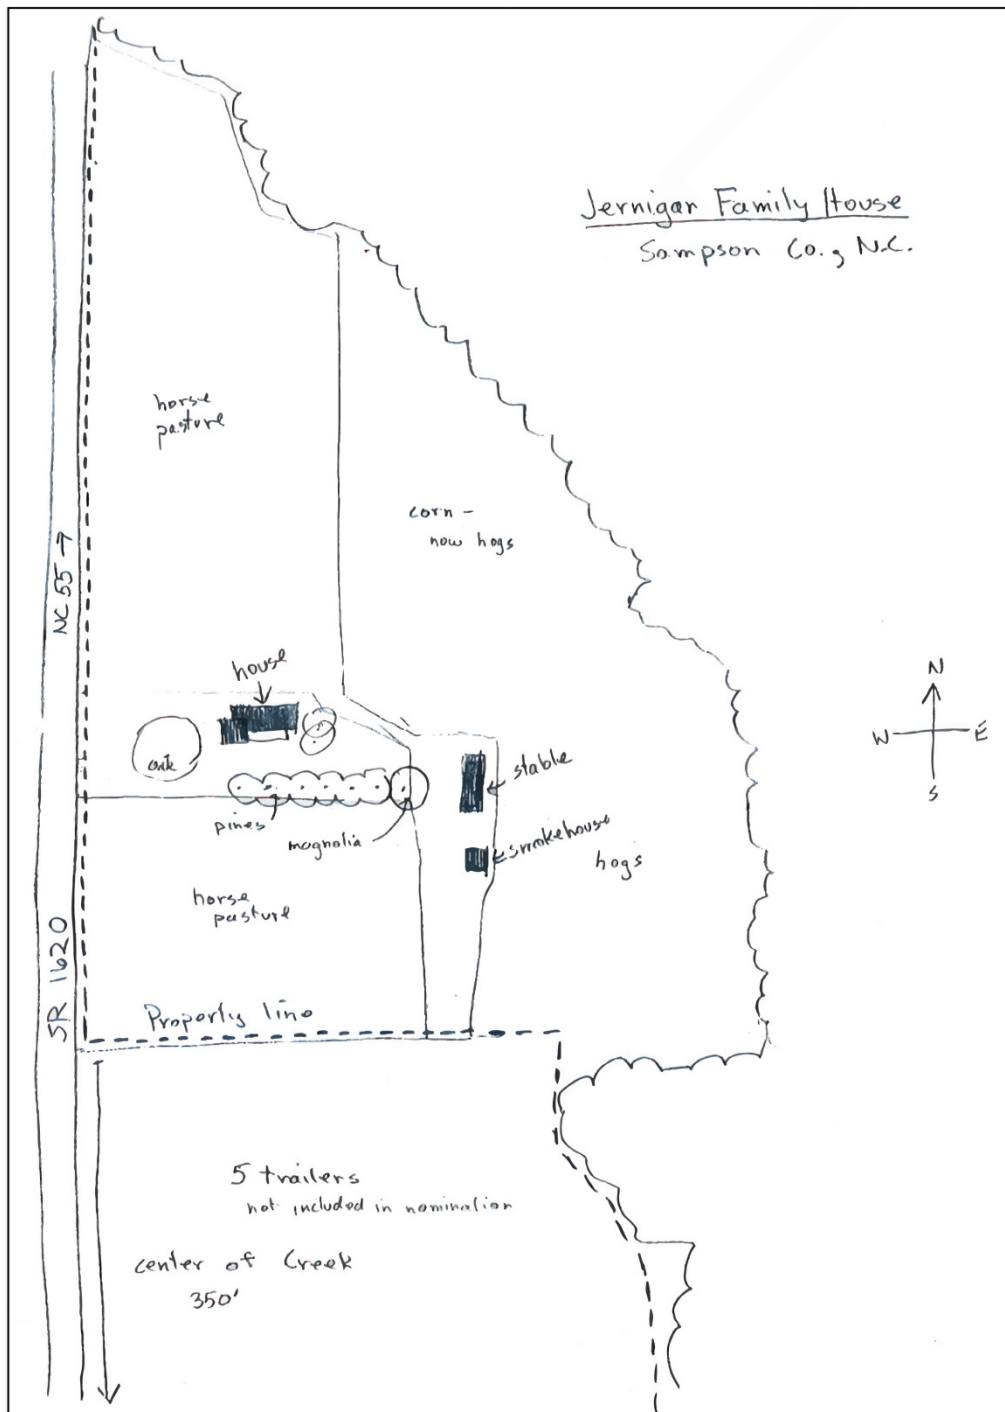 Jernigan Family House
Sampson Co., N.C.
horse
pasture
corn -
now hogs
NC 55 →
house
N
W
E
S
oak
stable
pines
magnolia
smokehouse
hogs
horse
pasture
SR 1620
Property line
5 trailers
not included in nomination
center of Creek
350'